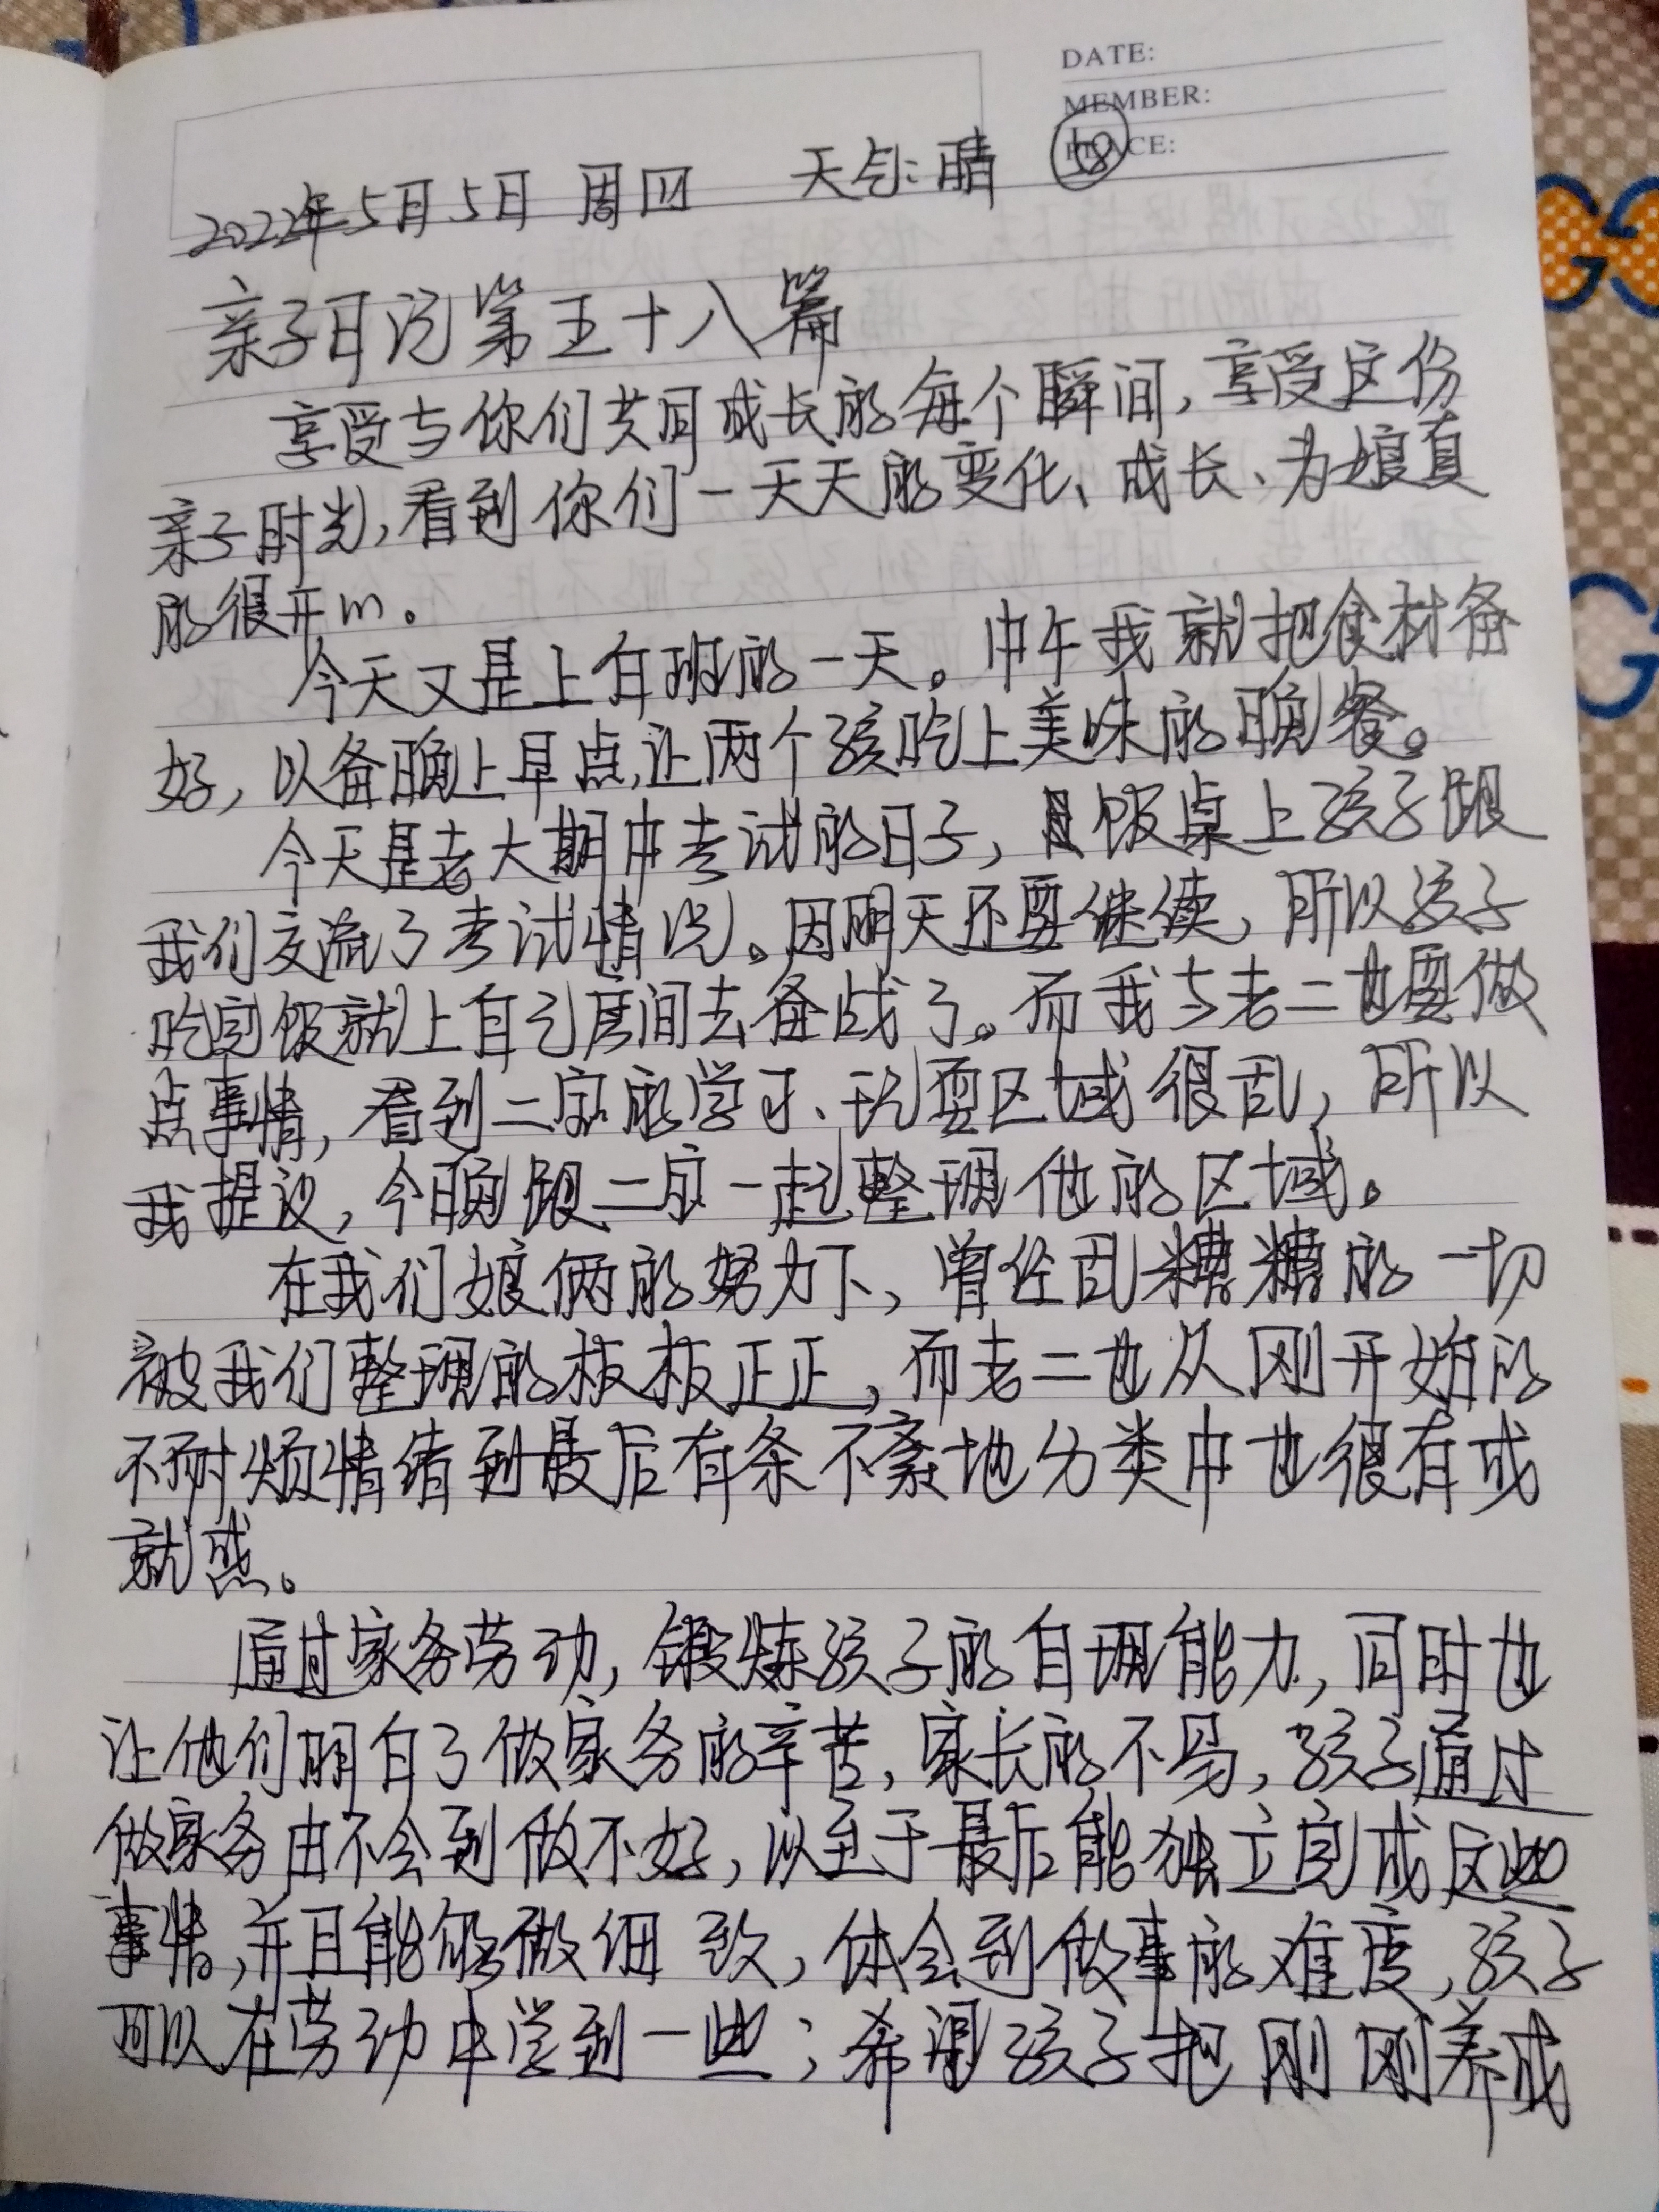 DATE:
MEMBER:
PLACE:
58
2022年5月5日 周四 天气:晴
亲子日记第五十八篇
享受与你们共同成长的每个瞬间,享受这份
亲子时光,看到你们一天天的变化、成长、为娘真
的很开心。
今天又是上白班的一天。中午我就把食材备
好,以备晚上早点让两个孩吃上美味的晚餐。
今天是老大期中考试的日子,且饭桌上孩子跟
我们交流了考试情况。因明天还要继续,所以孩子
吃完饭就上自己房间去备战了。而我与老二也要做
点事情,看到二宝的学习、玩耍区域很乱,所以
我提议,今晚跟二宝一起整理他的区域。
在我们娘俩的努力下,曾经乱糟糟的一切
被我们整理的板板正正,而老二也从刚开始的
不耐烦情绪到最后有条不紊地分类中也很有成
就感。
通过家务劳动,锻炼孩子的自理能力,同时也
让他们明白了做家务的辛苦,家长的不易,孩子通过
做家务由不会到做不好,以至于最后能独立完成这些
事情,并且能够做细致,体会到做事的难度,孩子
可以在劳动中学到一些;希望孩子把刚刚养成